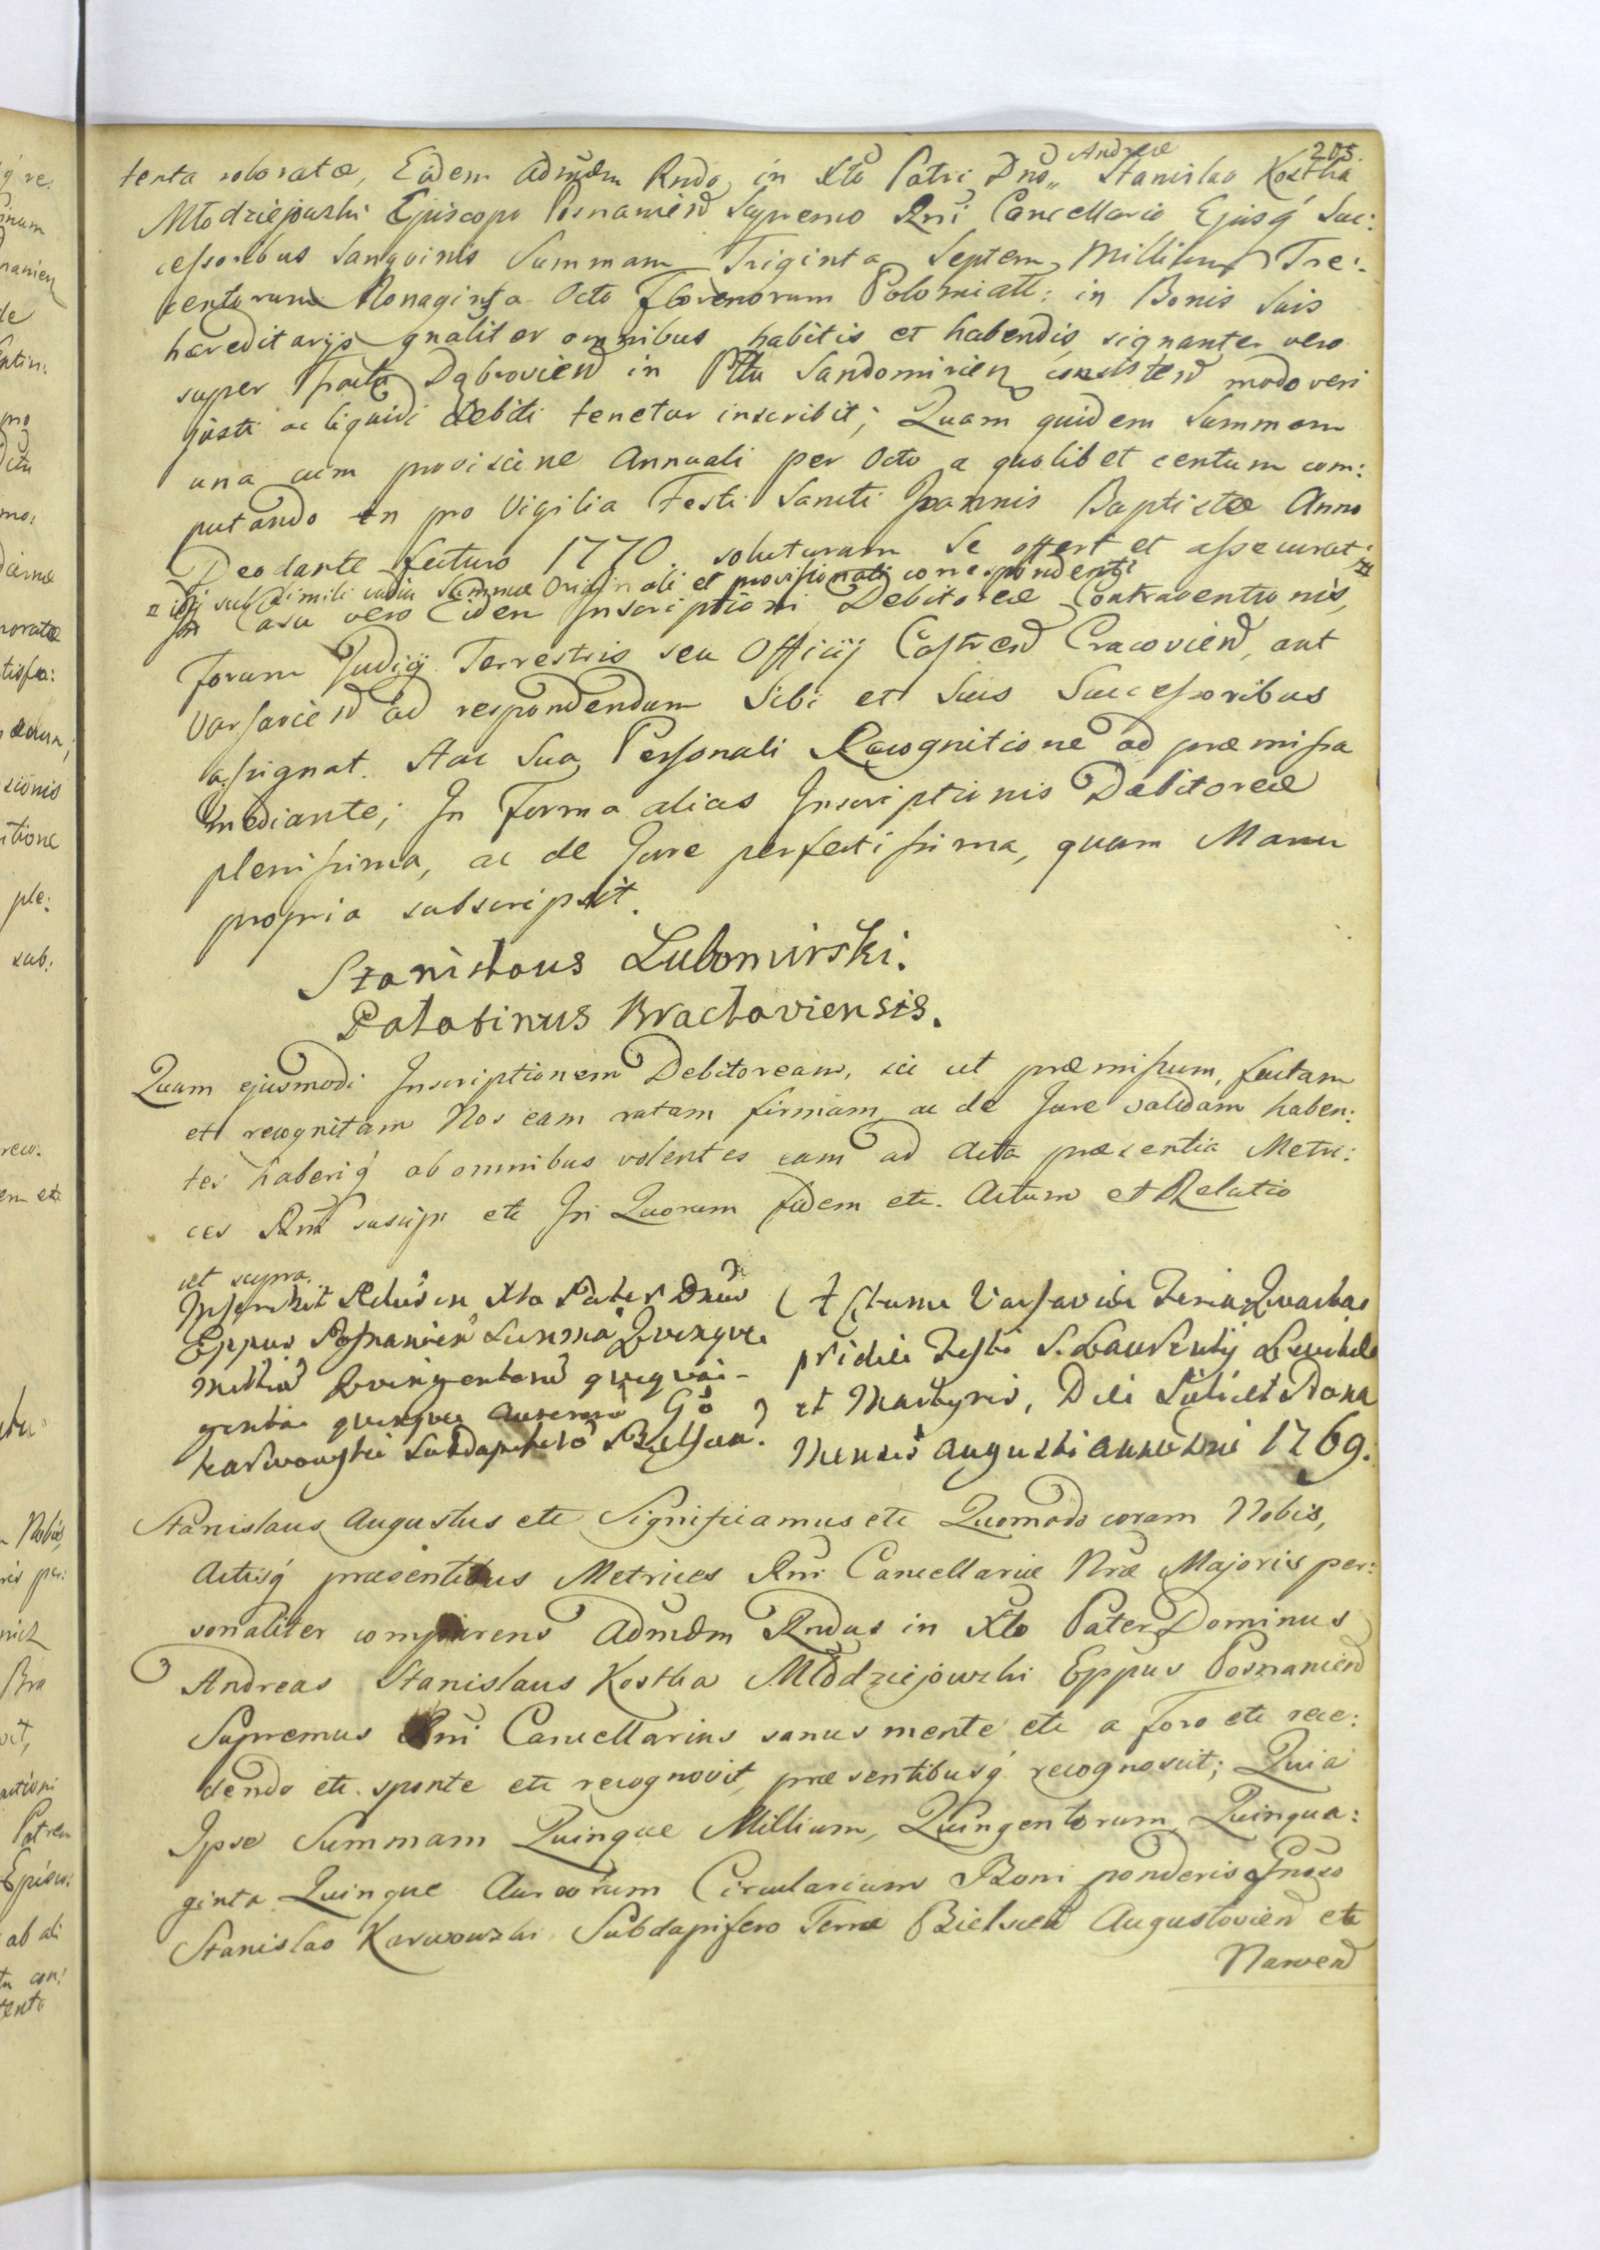 205.
Andreæ
tenta roboratæ, Eidem Admdm Rndo in Xto Patri Dno „ Stanislao Kostka
Młodziejowski Episcopo Posnanień Supremo Rni Cancellario Ejusq́ Suc:
cessoribus Sanguinis Summam Triginta Septem Millium Tre:
centorum Nonaginta Octo Florenorum Polonicall: in Bonis Suis
hæreditarijs gnaliter omnibus habitis et habendis, signanter vero
super Dąbrovień in Pttu Sandomirien consisteń modo veri
justi ac liquidi debiti tenetur inscribit; Quam quidem Summam
una cum provisione Annuali per Octo a quolibet centum com:
putando in pro Vigilia Festi Sancti Joannis Baptistæ Anno
Deodante futuro 1770. soluturum se offert et assecurat
sub simili vadio Summæ Originali et provisionali correspondenti
In Casu vero Eidem Inscriptioni Debitoreæ Contraventionis,
Forum Judicij Terrestris seu Officij Castreń Cracovień, aut
Varsavień ad respondendum Sibi et Suis Successoribus
assignat. Hac Sua Personali Recognitione ad præmissa
mediante; In Forma alias Inscriptionis Debitoreæ
plenissima, ac de Jure perfectissima, quam Manu
propria subscripsit.
Stanislaus Lubomirski.
Palatinus Braclaviensis.
Quam ejusmodi Inscriptionem Debitoream, sic ut præmissum, factam
et recognitam Nos eam ratam firmam ac de Jure validam haben:
tes haberiq́ ab omnibus volentes eam ad Acta præsentia Metri:
ces Rni suscipi etc In Quorum fidem etc. Actum et Relatio
ut supra.
Inscribit Rdus in Xto Pater Dnus
Eppus Posnanień Summā Quinque
Milliū Quingentorū quiqua-
ginta quinque aureorū Gō
Karwowski Subdapifero Bielsceń.
Actum Varsaviæ Feria Quarta
pridie Festi S. Laurentij Levitæ
et Martyris, Die Scilicet Nona
Mensis Augusti Anno Dni 1769.
Stanislaus Augustus etc Significamus etc Quomodo coram Nobis,
Actisq́ præsentibus Metrices Rni Cancellariæ Nræ Majoris per:
sonaliter comparens Admdm Rndus in Xto Pater Dominus
Andreas Stanislaus Kostka Młodziejowski Eppus Posnanień
Supremus Rni Cancellarius sanus mente etc a foro etc rece:
dendo etc. sponte etc recognovit, præsentibusq́ recognoscit; Quia
Ipse Summam Quinque Millium, Quingentorum, Quinqua:
ginta Quinque Aureorum Circularium Boni ponderis Gnoso
Stanislao Karwowski Subdapifero Terræ Bielsceń Augustovień etc
Narweń